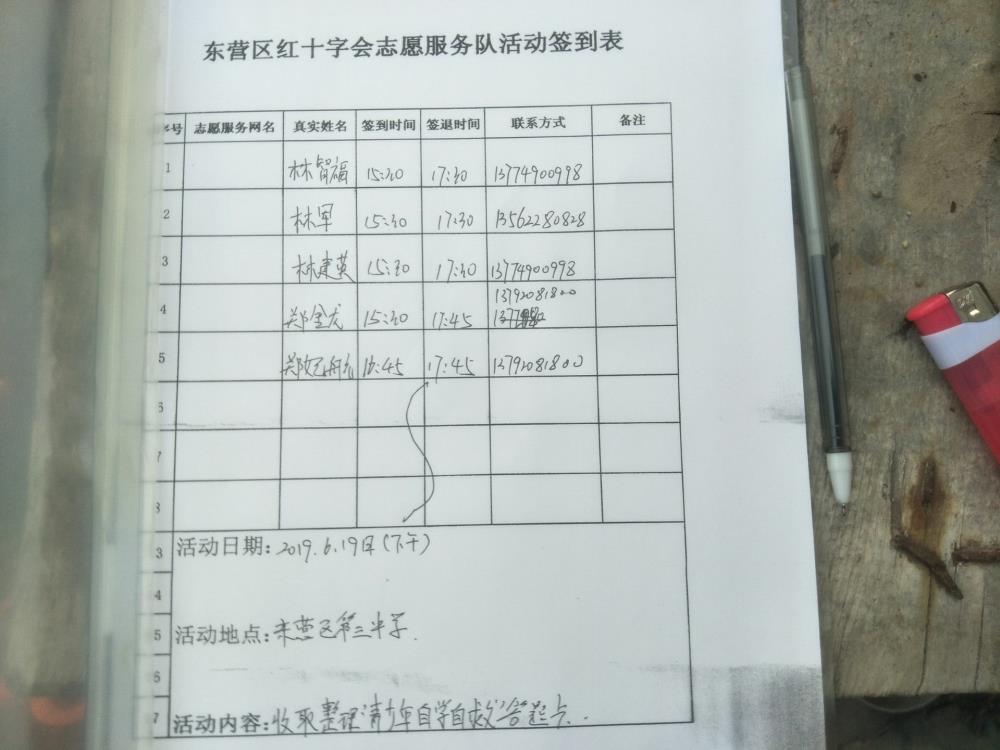 东营区红十字会志愿服务队活动签到表
号 志愿服务网名 真实姓名 签到时间 签退时间 联系方式 备注
1 林智福 15:30 17:30 13774900998
2 林军 15:30 17:30 13562280828
3 林建英 15:30 17:30 13774900998
13792081800
4 郑金龙 15:30 17:45
5 郑 16:45 17:45 13792081800
6
7
8
3 活动日期: 2019.6.19日(下午)
4
5 活动地点: 东营区第三中学.
6
7 活动内容: 收取整理"青少年自学自救"答题卡..